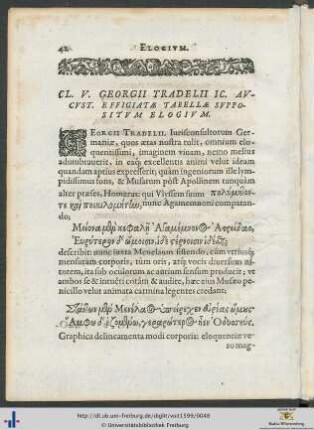 42 ELOGIVM.
CL. V. GEORGII TRADELII IC. AV-
CVST. EFFIGIATÆ TABELLÆ SVPPO-
SITVM ELOGIVM.
GEORGII TRADELII. Iurisconsultorum Ger-
maniæ, quos ætas nostra tulit, omnium elo-
quentissimi, imaginem viuam, nemo melius
adumbrauerit, in eaq; excellentis animi velut ideam
quandam aptius expresserit, quàm ingeniorum ille lym-
pidissimus fons, & Musarum pòst Apollinem tanquàm
alter præses, Homerus: qui Vlyssem suum πολύμητιν
τε καὶ ποικιλομήτην, nunc Agamemnoni computan-
do,
Μείονα μὲν κεφαλῇ Ἀγαμέμνονος Ἀτρείδαο,
Εὐρύτερον δ' ὤμοισιν ἰδὲ στέρνοισιν ἰδέσθαι,
describit: nunc iuxta Menelaum sistendo, cùm
mensuram corporis, tùm oris, atq; vocis diuersum
torem, ita sub oculorum ac aurium sensum producit; ve
ambos se & intuêri coràm & audire, hæc eius Musæo
penicillo velut animata carmina legentes credant.
Στάντων μὲν Μενέλαος ὑπείρεχεν εὐρέας ὤμους
Ἄμφω δ' ἑζομένω, γεραρώτερος ἦεν Ὀδυσσεύς.
Graphica delineamenta modi corporis: eloquentiæ ve-
rò mag-
http://dl.ub.uni-freiburg.de/diglit/voit1599/0048
© Universitätsbibliothek Freiburg
Baden-Württemberg